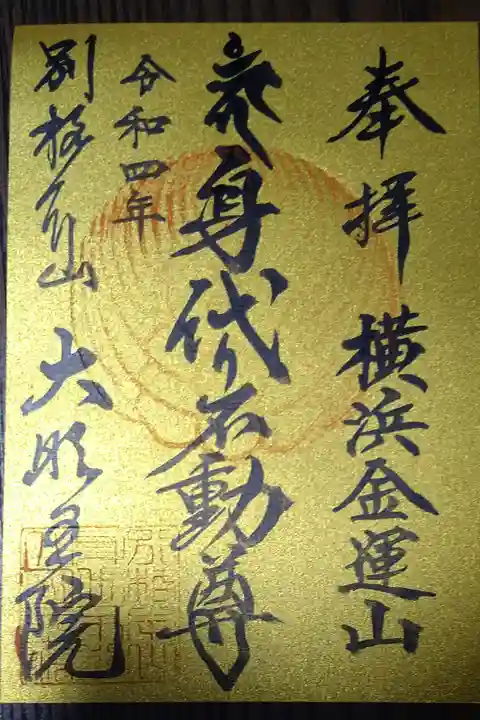 奉拝 横浜金運山
身代り不動尊
令和四年
別格本山 大明王院